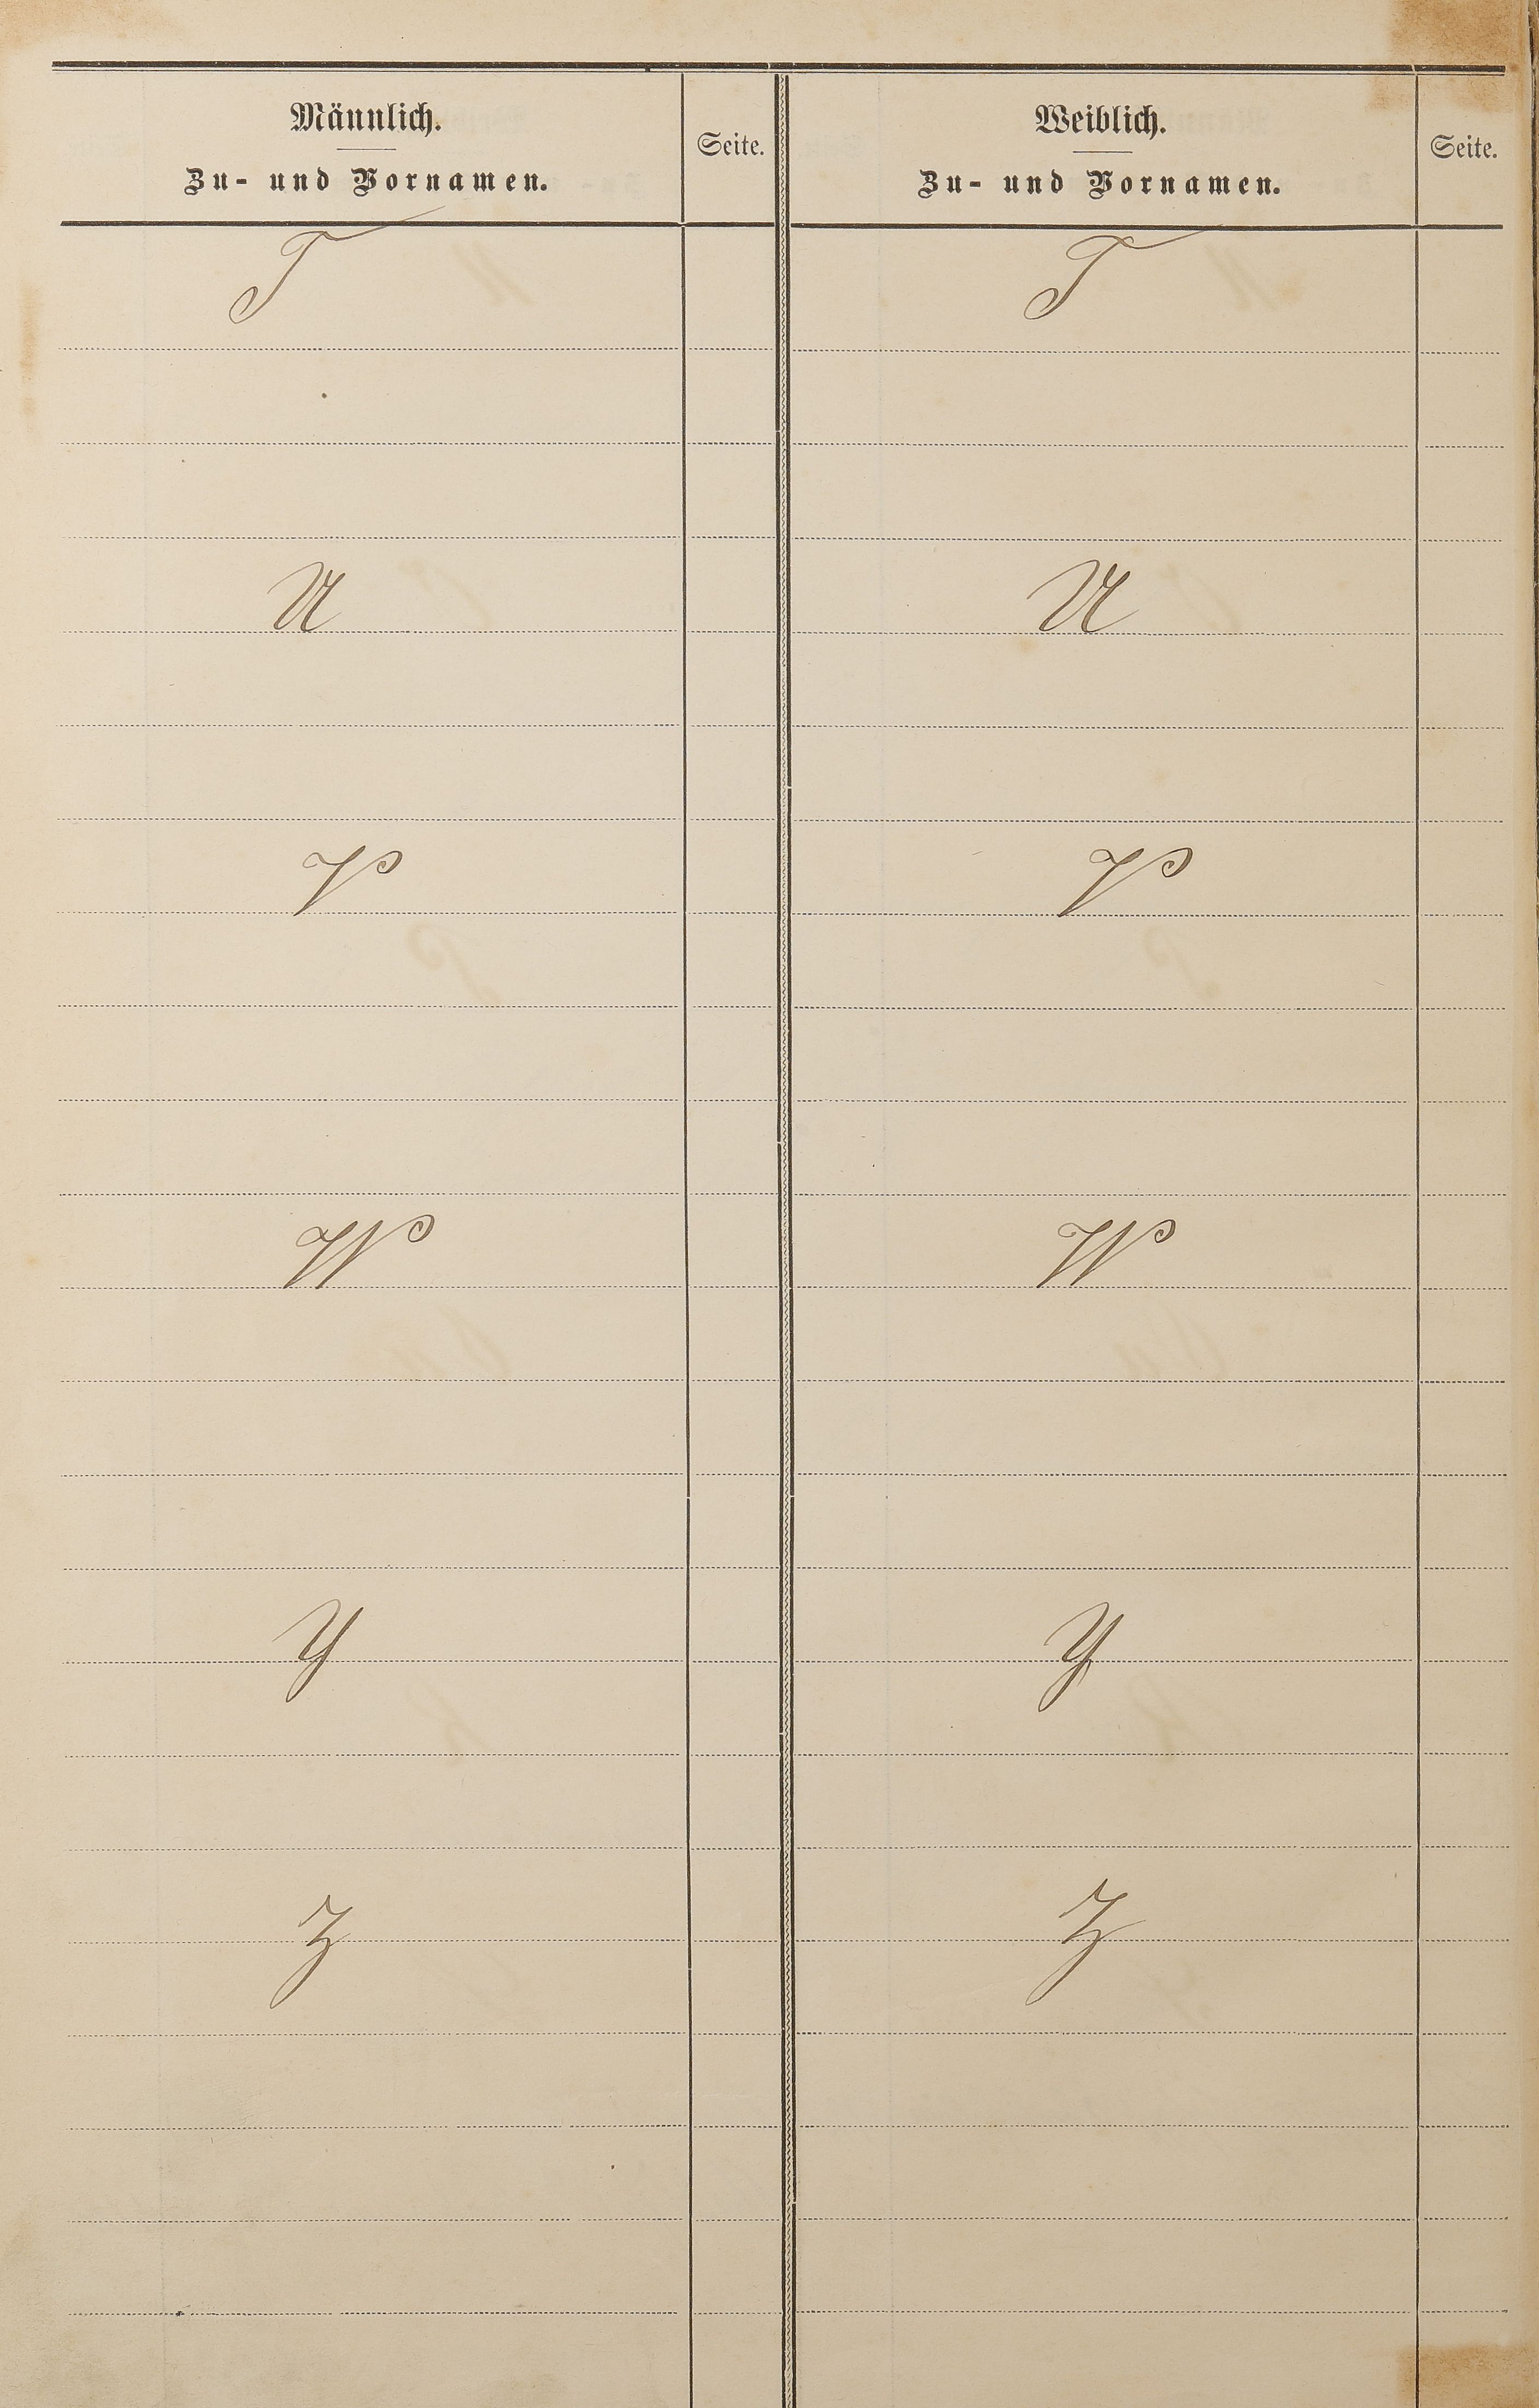 Männlich.
Zu- und Vornamen.
Seite.
Weiblich.
Zu- und Vornamen.
Seite.
T T
U U
V V
W W
Y Y
Z Z